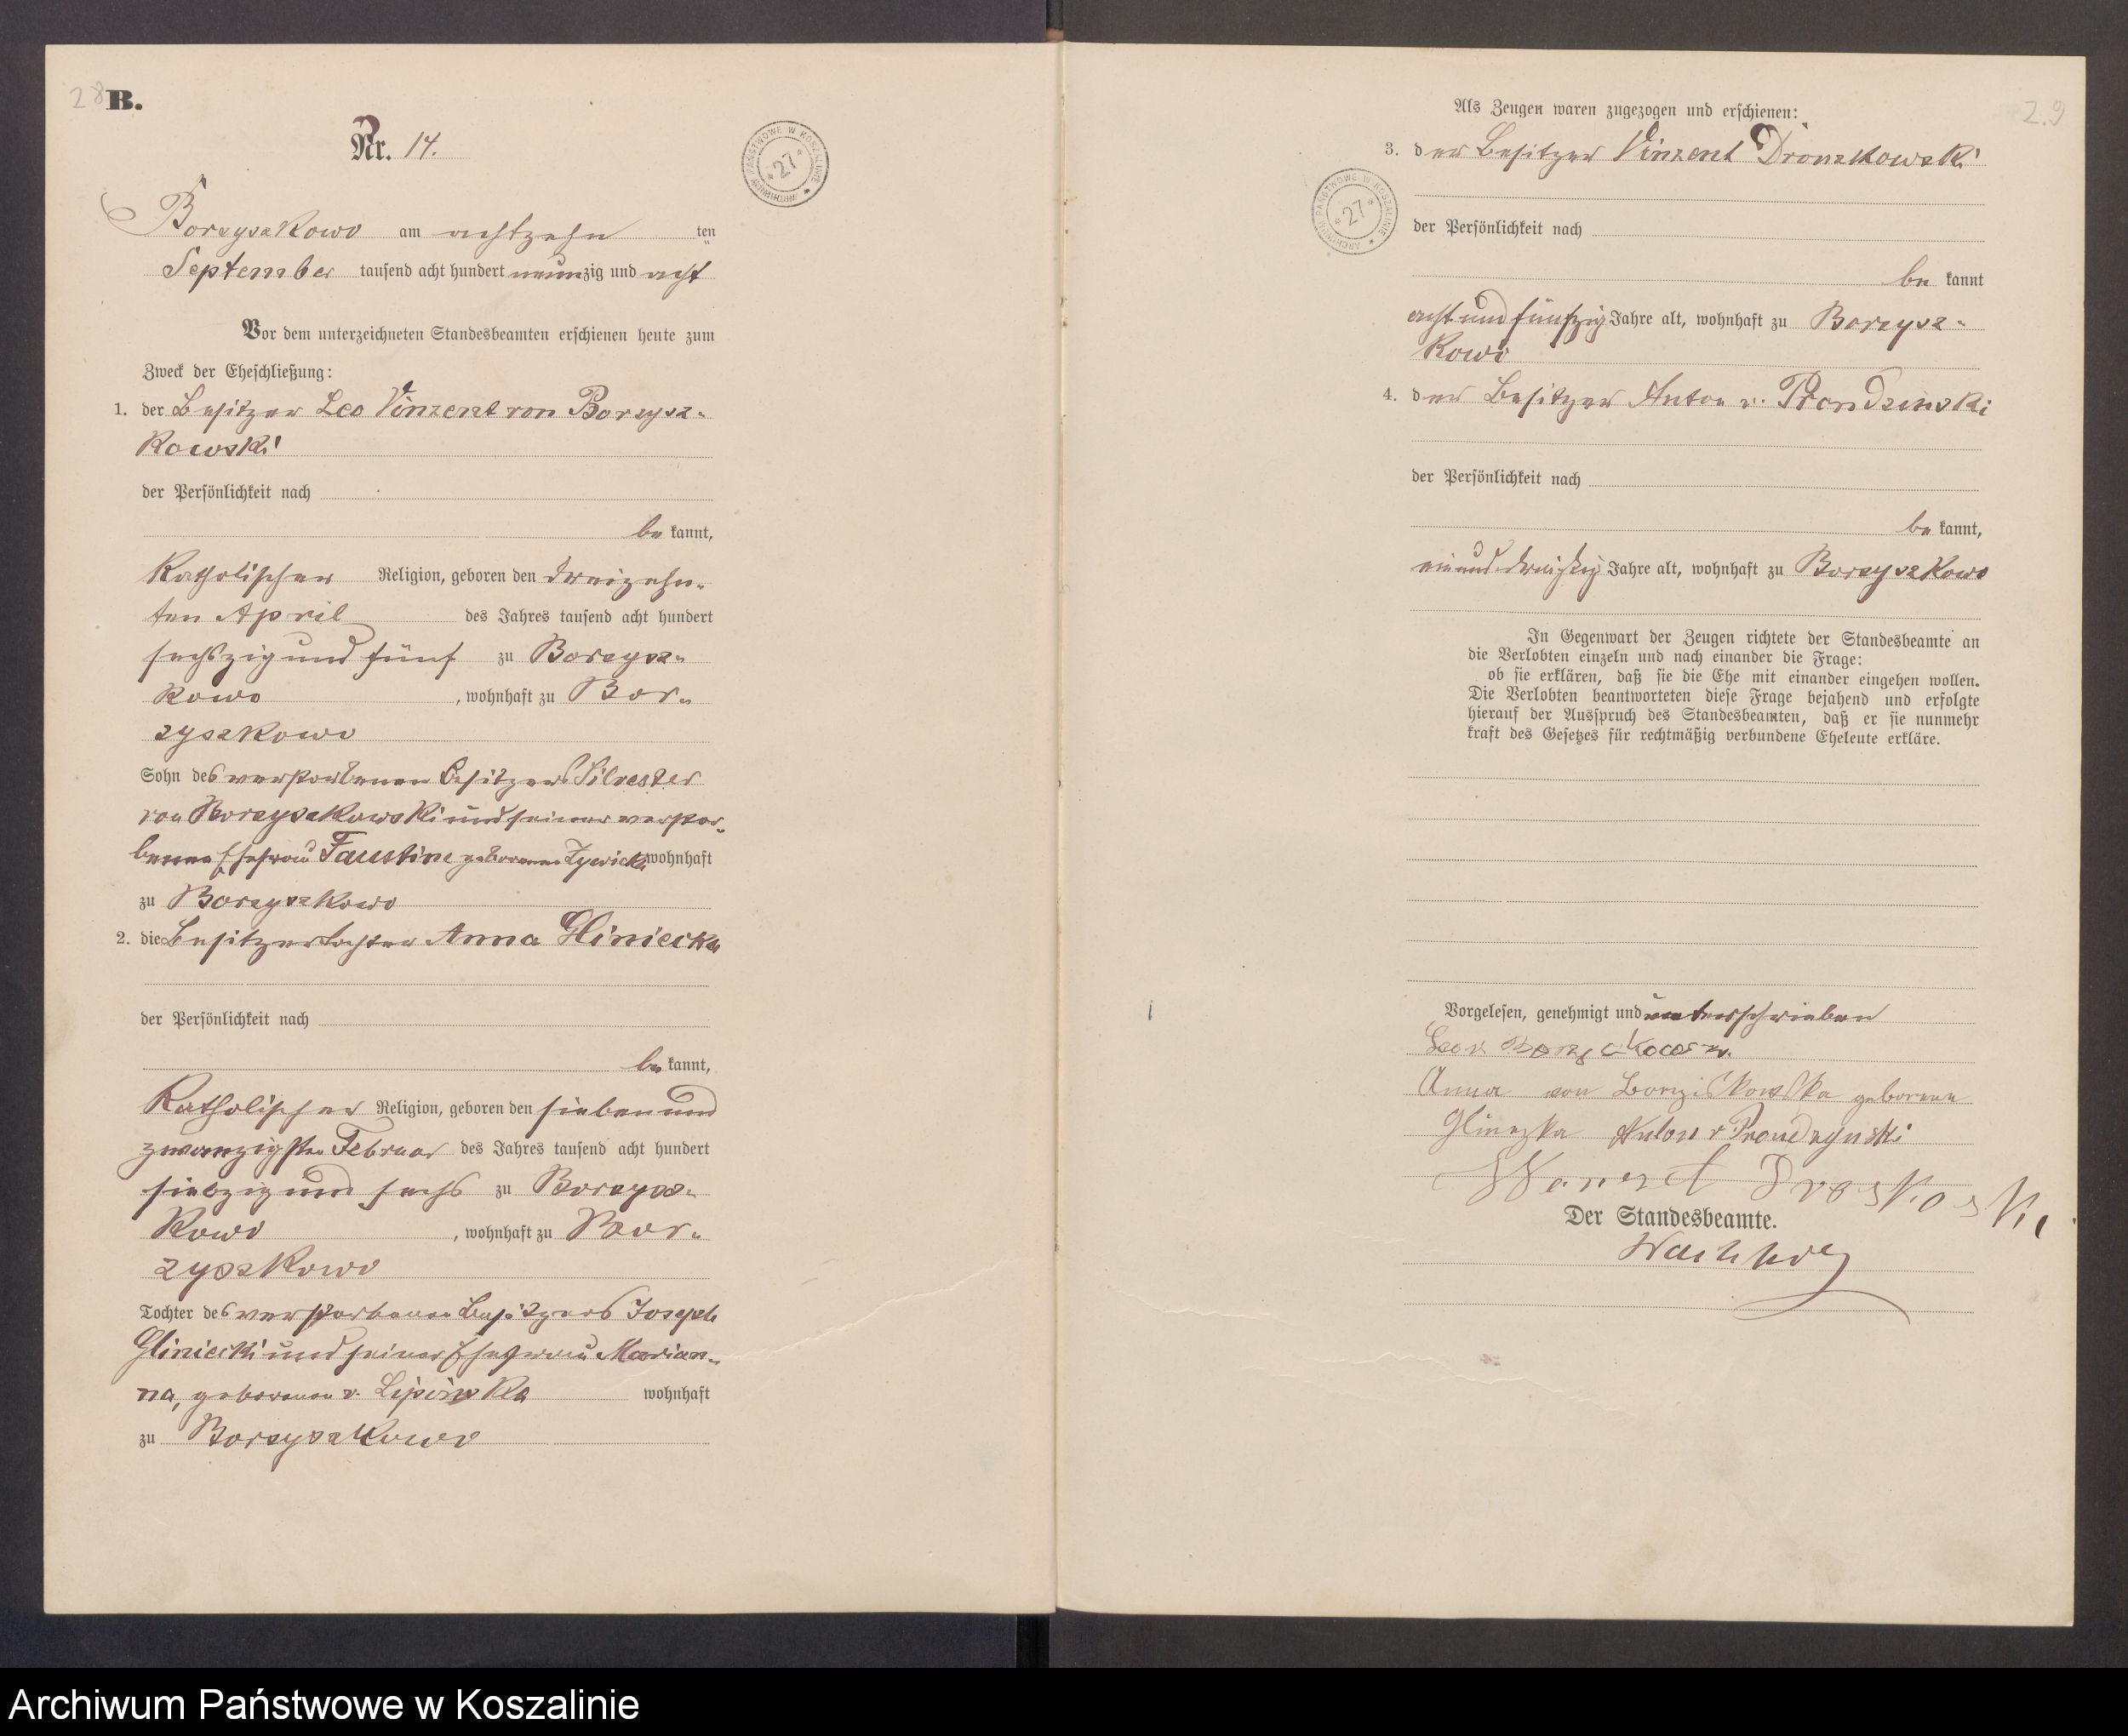 28 B.
Nr. 14.
ARCHIWUM PAŃSTWOWE W KOSZALINIE
* 27 *
Borzyszkowo am achtzehn ten
September tausend acht hundert neunzig und acht
Vor dem unterzeichneten Standesbeamten erschienen heute zum
Zweck der Eheschließung:
1. der Besitzer Leo Vinzent von Borzysz-
kowski
der Persönlichkeit nach
be kannt,
Katholischer Religion, geboren den dreizehn-
ten April des Jahres tausend acht hundert
sechszig und fünf zu Borzysz-
kowo , wohnhaft zu Bor-
zyszkowo
Sohn des verstorbenen Besitzers Silvester
von Borzyszkowski und seiner verstor-
benen Ehefrau Faustine geborenen Zywicka wohnhaft
zu Borzyszkowo
2. die Besitzertochter Anna Gliniecka
der Persönlichkeit nach
be kannt,
Katholischer Religion, geboren den sieben und
zwanzigsten Februar des Jahres tausend acht hundert
siebzig und sechs zu Borzysz-
kowo , wohnhaft zu Bor-
zyszkowo
Tochter des verstorbenen Besitzers Joseph
Gliniecki und seiner Ehefrau Marian-
na, geborenen v. Lipinska wohnhaft
zu Borzyszkowo
29
Als Zeugen waren zugezogen und erschienen:
3. der Besitzer Vinzent Dronszkowski
ARCHIWUM PAŃSTWOWE W KOSZALINIE
* 27 *
der Persönlichkeit nach
be kannt
acht und fünfzig Jahre alt, wohnhaft zu Borzysz-
kowo
4. der Besitzer Anton v. Prondzinski
der Persönlichkeit nach
be kannt,
ein und dreißig Jahre alt, wohnhaft zu Borzyszkowo
In Gegenwart der Zeugen richtete der Standesbeamte an
die Verlobten einzeln und nach einander die Frage:
ob sie erklären, daß sie die Ehe mit einander eingehen wollen.
Die Verlobten beantworteten diese Frage bejahend und erfolgte
hierauf der Ausspruch des Standesbeamten, daß er sie nunmehr
kraft des Gesetzes für rechtmäßig verbundene Eheleute erkläre.
Vorgelesen, genehmigt und unterschrieben
Leo v.
Anna von Borziskowska geborene
Glinezka Anton v Prondzynski
Der Standesbeamte.
Archiwum Państwowe w Koszalinie